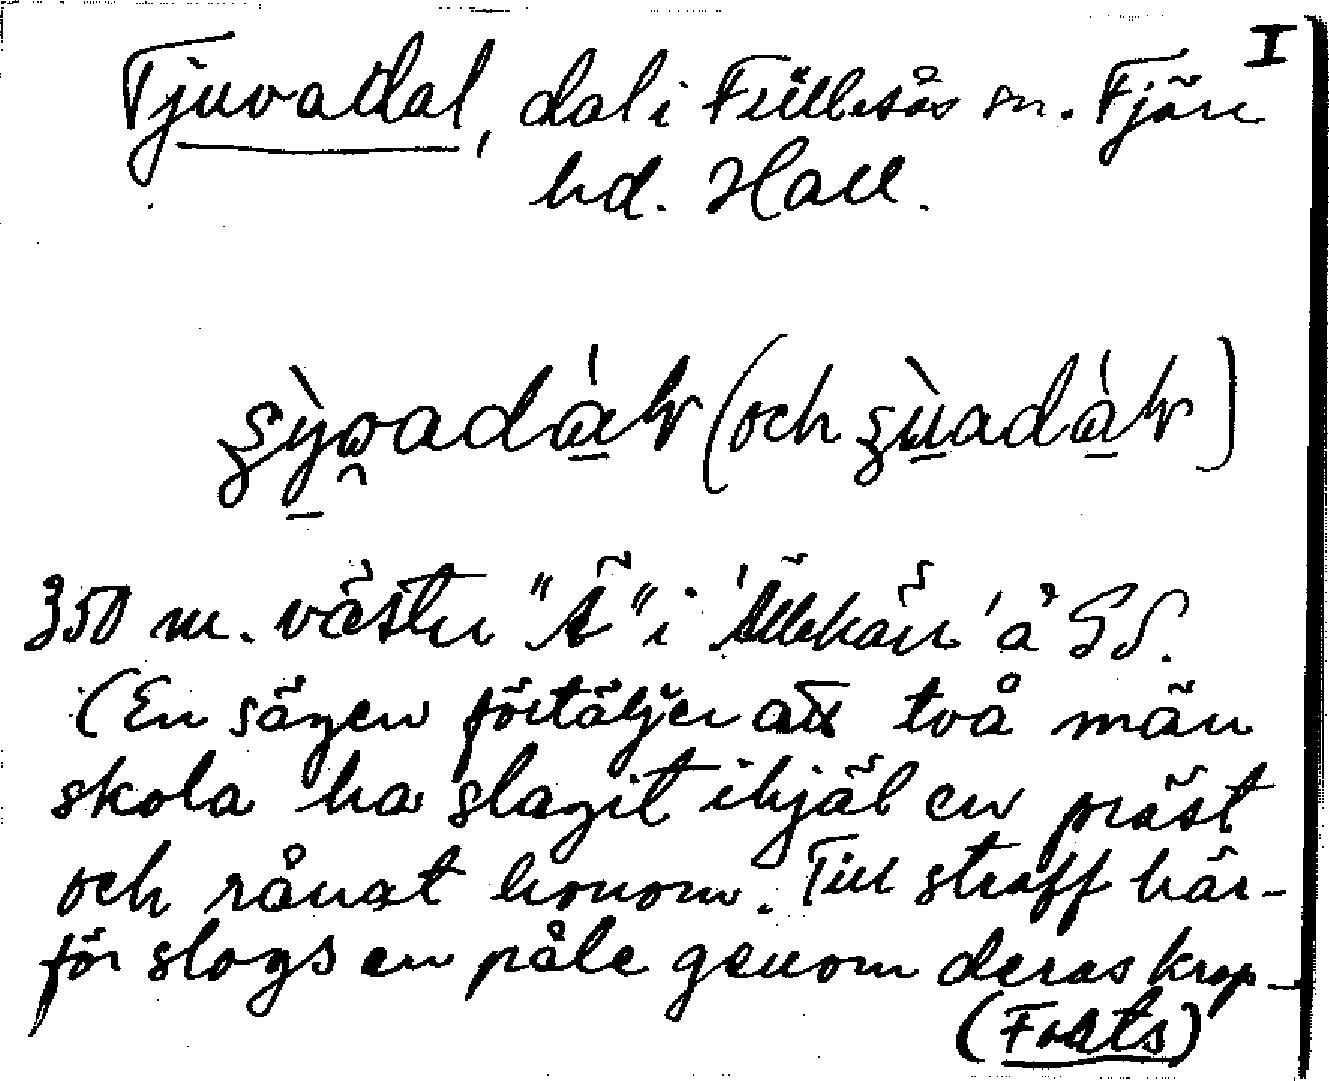 I
Tjuvadal, dal i Fjällesås sn. Fjäre
hd. Hall.
(och
350 m. väster "Ä" i 'Ällekärr' å GS.
(En sägen förtäljer att två män
skola ha slagit ihjäl en präst
och rånat honom. Till straff här-
för slogs en påle genom deras krop-
(Forts)